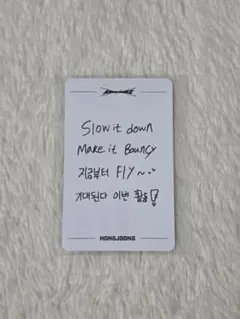 Slow it down
Make it Bouncy
지금부터 Fly~
기대된다 이번 활동!
HONGJOONG